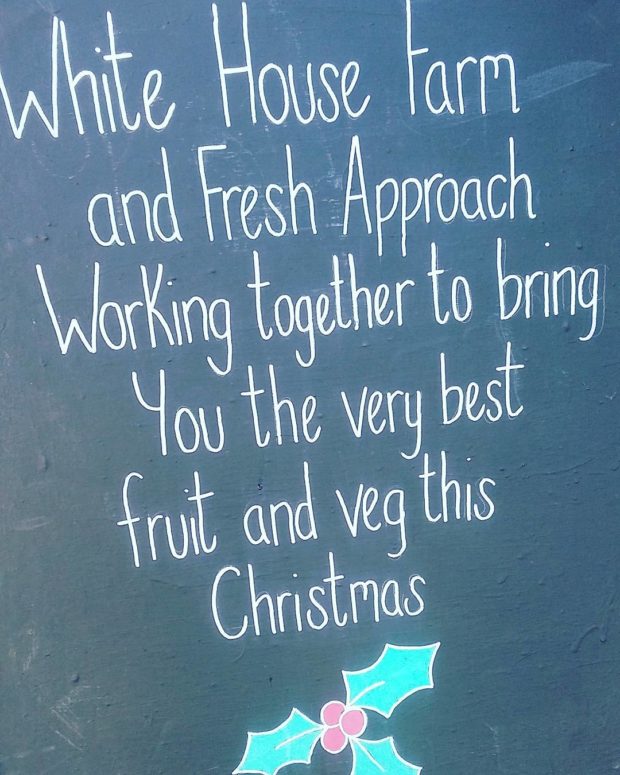 White House Farm
and Fresh Approach
Working together to bring
You the very best
fruit and veg this
Christmas